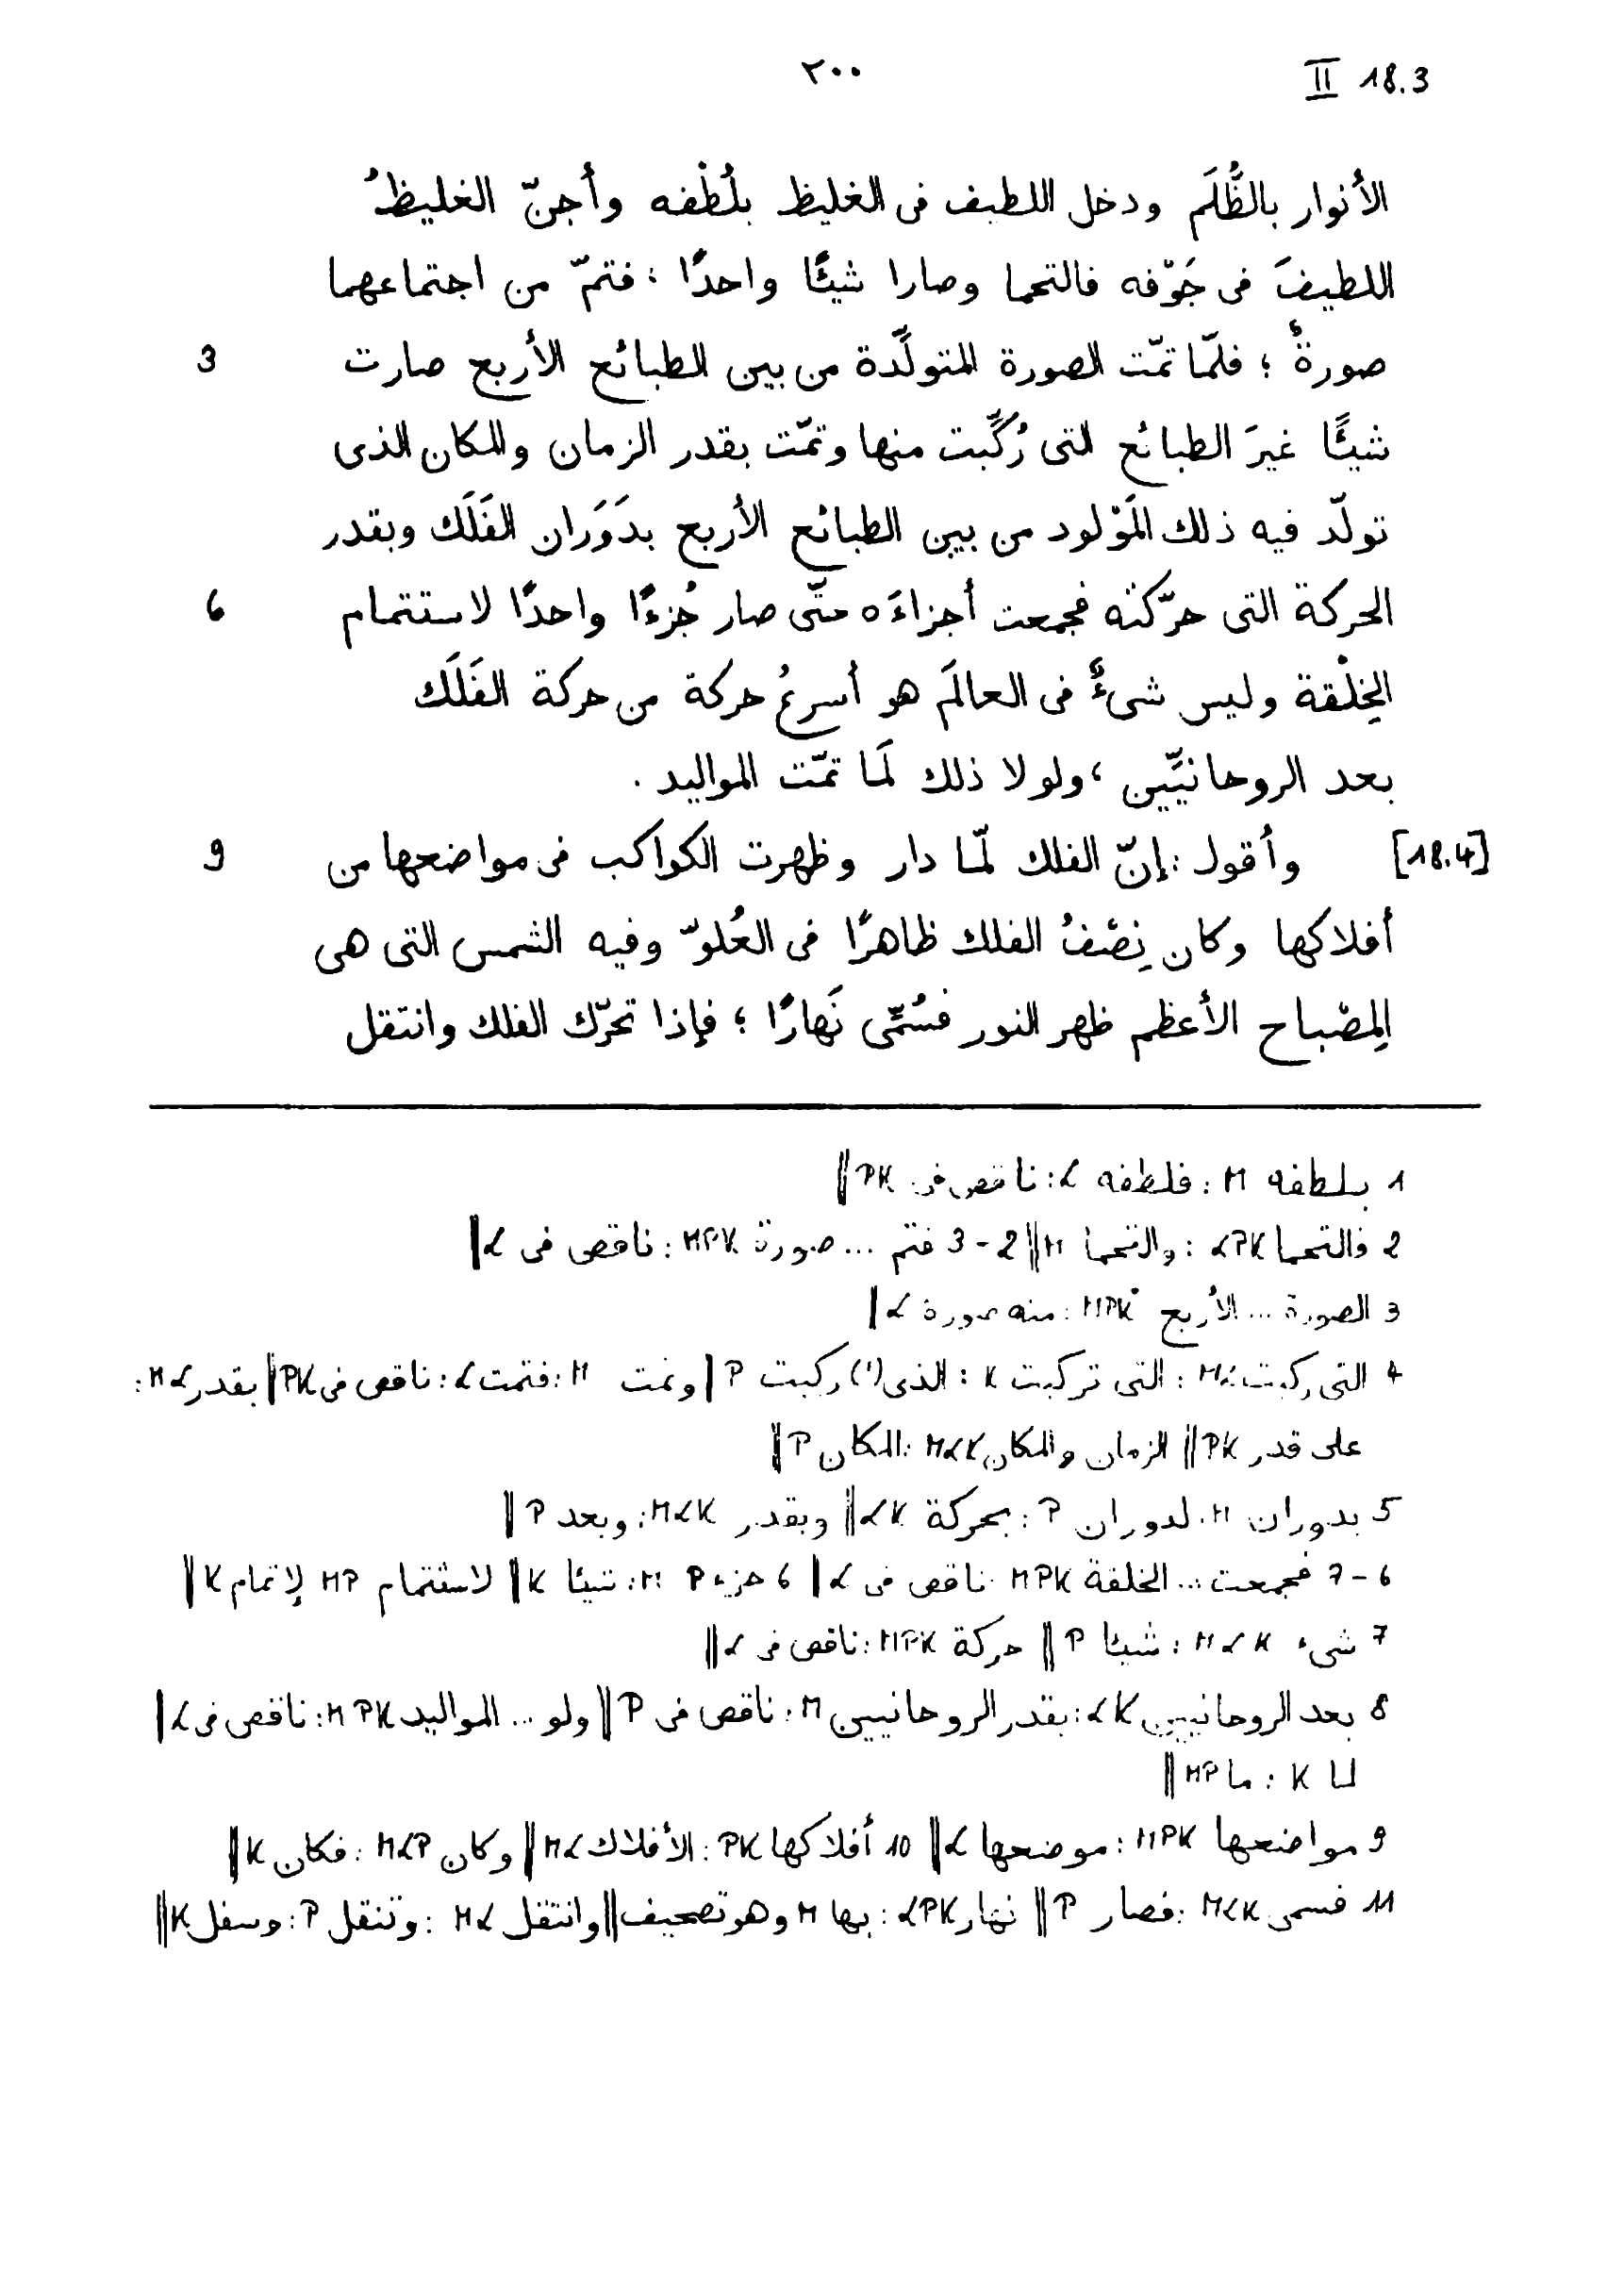 ٢٠٠ II 18.3
الأنوار بالظُّلَم ودخل اللطيف فى الغليظ بلُطْفه وأجنّ الغليظُ
اللطيفَ فى جَوْفه فالتحما وصارا شيئًا واحدًا ؛ فتمّ من اجتماعهما
صورةٌ ؛ فلمّا تمّت الصورة المتولّدة من بين الطبائع الأربع صارت 3
شيئًا غيرَ الطبائع التى رُكّبت منها وتمّت بقدر الزمان والمكان الذى
تولّد فيه ذلك المَوْلود من بين الطبائع الأربع بدَوَران الفَلَك وبقدر
الحركة التى حرّكته فجمعت أجزاءَه حتّى صار جُزءًا واحدًا لاستتمام 6
الخِلْقة وليس شىءٌ فى العالَم هو أسرعُ حركة من حركة الفَلَك
بعد الروحانيّين ، ولولا ذلك لَما تمّت المواليد .
[18.4] وأقول : إنّ الفلك لمّا دار وظهرت الكواكب فى مواضعها من 9
أفلاكها وكان نِصْفُ الفلك ظاهرًا فى العُلوّ وفيه الشمس التى هى
المِصْباح الأعظم ظهر النور فسُمّى نَهارًا ؛ فإذا تحرّك الفلك وانتقل
1 بلطفه M : فلطفه L : ناقص فى PK ‖
2 فالتحما LPK : والتحما M ‖ 2-3 فتم ... صورة MPK : ناقص فى L ‖
3 الصورة ... الأربع MPK : منه صورة L ‖
4 التى ركبت ML : التى تركبت K : الذى (!) ركبت P ‖ وتمت M : فتمت L : ناقص فى PK ‖ بقدر ML :
على قدر PK ‖ الزمان والمكان MLK : المكان P ‖
5 بدوران M : لدوران P : بحركة LK ‖ وبقدر MLK : وبعد P ‖
6-7 فجمعت ... الخلقة MPK : ناقص فى L ‖ 6 جزء P M : شيئا K ‖ لاستتمام MP : لإتمام K ‖
7 شىء MLK : شيئا P ‖ حركة MPK : ناقص فى L ‖
8 بعد الروحانيين LK : بقدر الروحانيين M : ناقص فى P ‖ ولو ... المواليد MPK : ناقص فى L ‖
لما K : ما MP ‖
9 مواضعها MPK : موضعها L ‖ 10 أفلاكها PK : الأفلاك ML ‖ وكان MLP : فكان K ‖
11 فسمى MLK : فصار P ‖ نهار LPK : بها M وهو تصحيف ‖ وانتقل ML : وتنقل P : وسفل K ‖